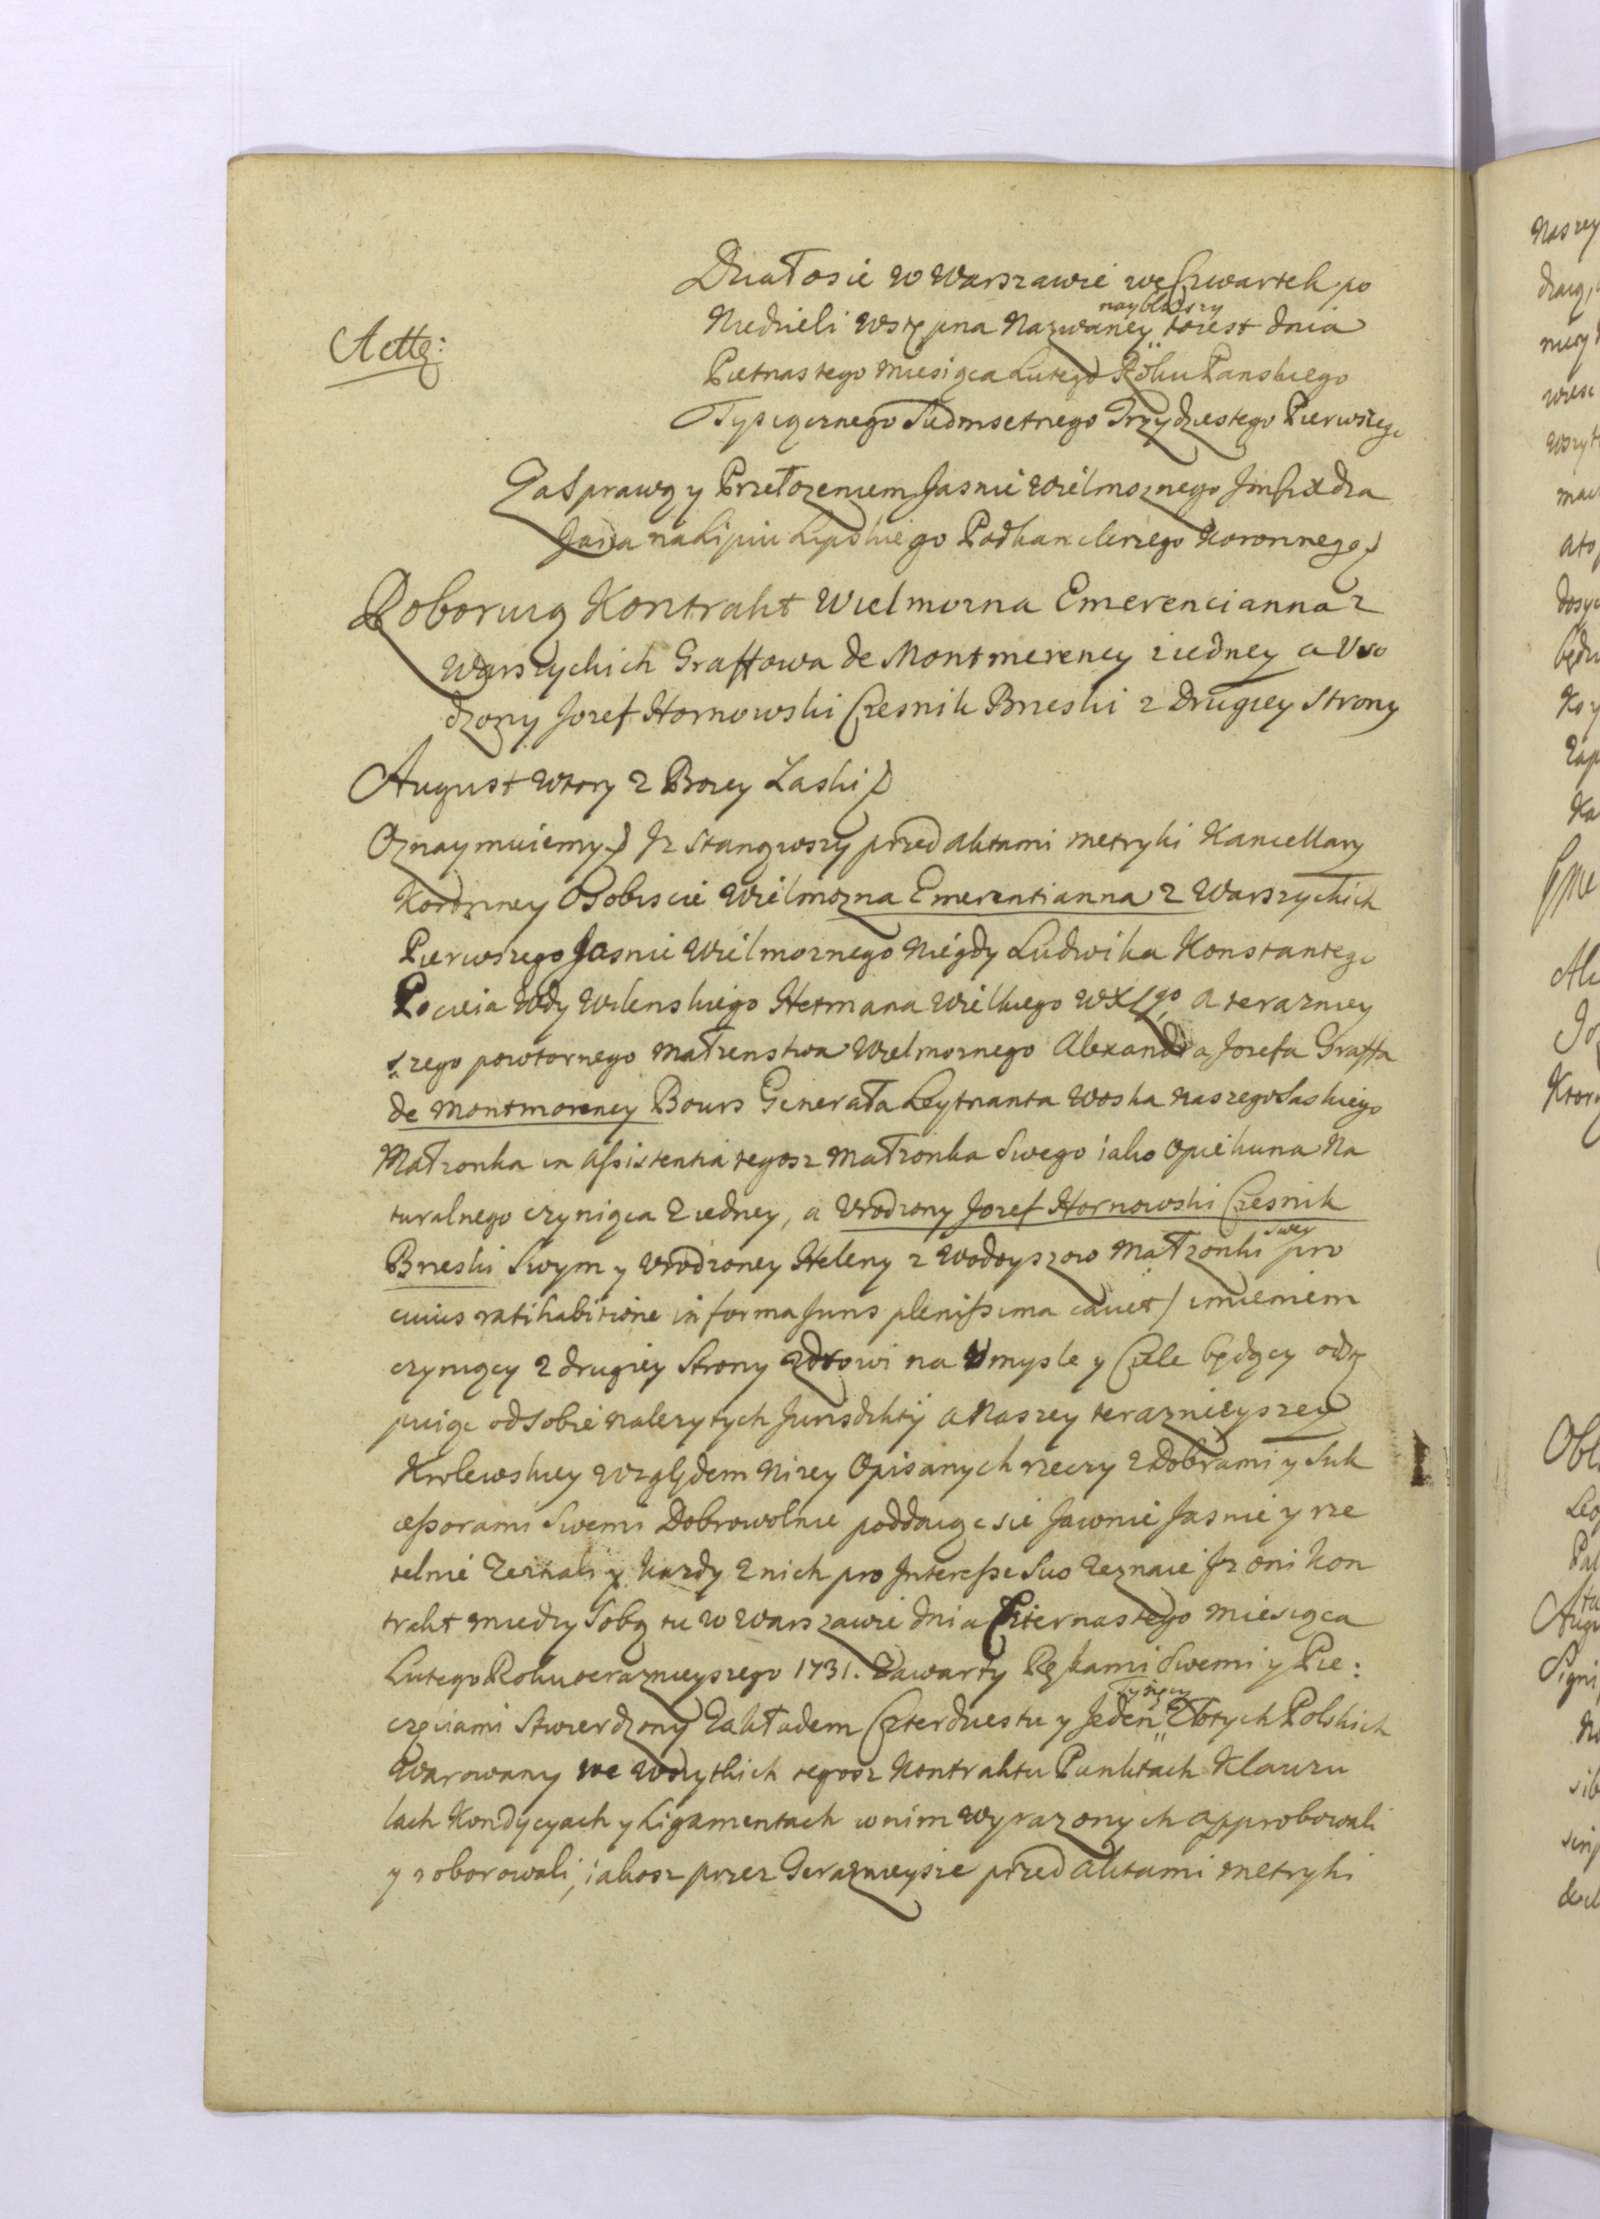 Działosie w Warszawie we Czwartek po
Niedzieli Wstępna Nazwaney naybliższy toiest dnia
Actte:
Pietnastego Miesiąca Lutego Roku Panskiego
Tysiącznego Siedmsetnego Trzydziestego Pierwszego
Za Sprawą y Przełozeniem Jasnie Wielmoznego Jmci Xdza
Jana na Lipiu Lipskiego Podkanclerzego Koronnego
Roboruią Kontrakt Wielmozna Emerencianna z
Warszychich Graffowa de Montmerency z iedney a Uro
dzony Jozef Hornowski Czesnik Brzeski z Drugiey Strony
August Wtory z Bozey Laski
Oznaymuiemy Jz Stanąwszy przed Aktami Metryki Kancellary
Koronney Osobiscie Wielmozna Emerentianna z Warszychich
Pierwszego Jasnie Wielmoznego Niegdy Ludwika Konstantego
Pocieia Wdy Wilenskiego Hetmana Wielkiego WXLgo, a terazniey
szego powtornego Małzenstwa Wielmoznego Alexandra Jozefa Graffa
de Montmorency Bours Generała Leytnanta Woska Naszego Saskiego
Małzonka in Assistentia tegosz Małzonka Swego iako Opiekuna Na
turalnego czyniąca z iedney, a Urodzony Jozef Hornowski Czesnik
Brzeski Swym y Urodzoney Heleny z Wodoyszow Małzonki swey pro
cuius ratihabitione in forma Juris plenissima cavet / imieniem
czyniący z drugiey Strony zdrowi na Umysle y Ciele będący odstę
puiąc od Sobie nalezytych Jurisdikty a Naszey teraznieyszey
Krolewskiey Względem Nizey Opisanych rzeczy z Dobrami y Suk
cessorami Swemi Dobrowolnie poddaiąc sie Jawnie Jasnie y rze
telnie Zeznali y kazdy z nich pro Interesse Suo Zeznaie Jz oni Kon
trakt miedzy Sobą tu w Warszawie dnia Czternastego Miesiąca
Lutego Roku teraznieyszego 1731. Zawarty Rękami Swemi y Pie:
częciami Stwierdzony Zakładem Czterdziestu y Jeden Tysięcy Złotych Polskich
Warowany we Wszytkich tegosz Kontraktu Punktach Klauzu
lach Kondycyach y Ligamentach w nim Wyrazonych approbowali
y roborowali, iakosz przez Teraznieysze przed Aktami Metryki